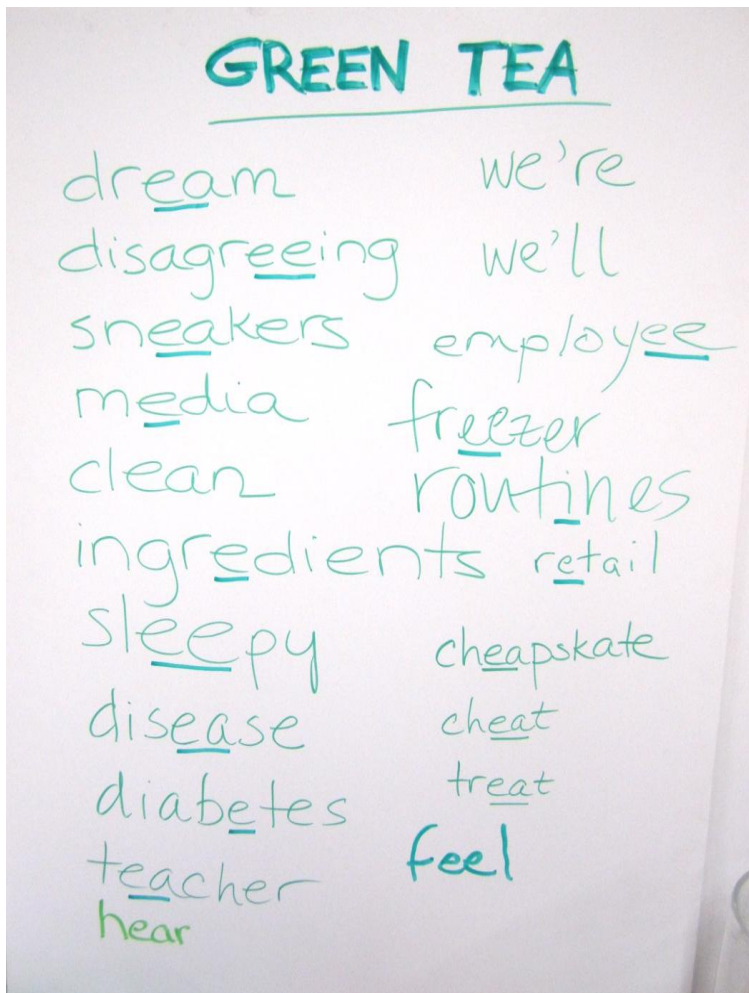 GREEN TEA
dream
disagreeing
sneakers
media
clean
ingredients
sleepy
disease
diabetes
teacher
hear
we're
we'll
employee
freezer
routines
retail
cheapskate
cheat
treat
feel